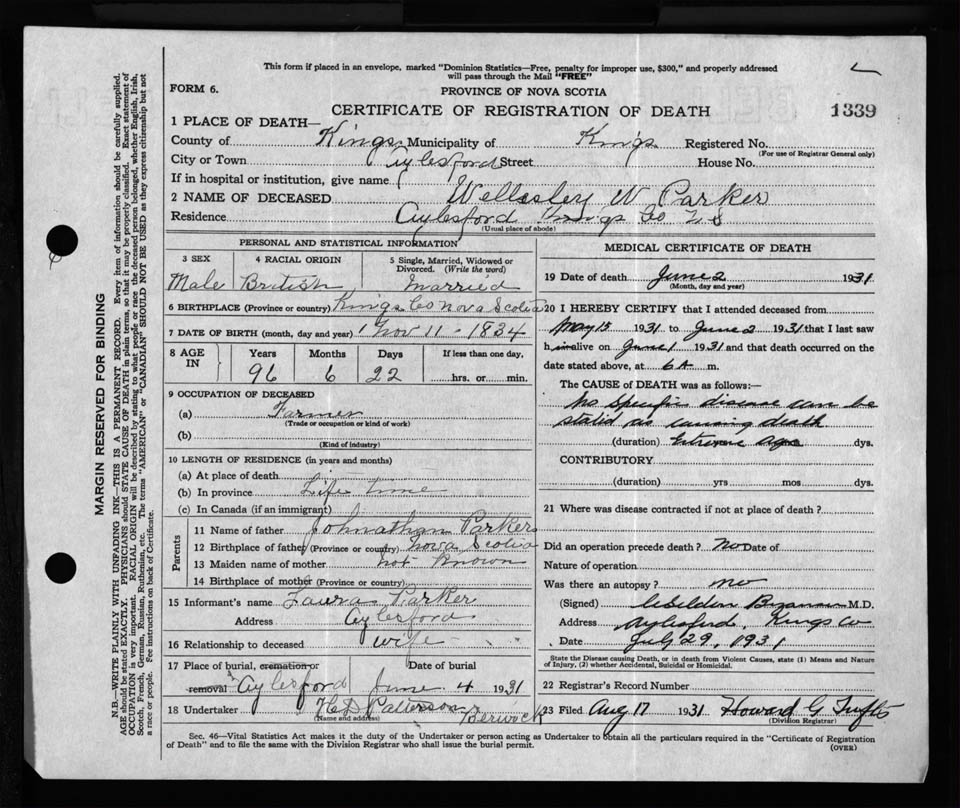 This form if placed in an envelope, marked "Dominion Statistics—Free, penalty for improper use, $300," and properly addressed
will pass through the Mail "FREE"
FORM 6.
PROVINCE OF NOVA SCOTIA
CERTIFICATE OF REGISTRATION OF DEATH
1339
1 PLACE OF DEATH—
County of Kings Municipality of Kings Registered No.
(For use of Registrar General only)
City or Town Aylesford Street House No.
If in hospital or institution, give name
2 NAME OF DECEASED Wellsley W Parker
Residence Aylesford Kings Co N S
(Usual place of abode)
PERSONAL AND STATISTICAL INFORMATION
3 SEX 4 RACIAL ORIGIN 5 Single, Married, Widowed or
Divorced. (Write the word)
Male British Married
6 BIRTHPLACE (Province or country) Kings Co Nova Scotia
7 DATE OF BIRTH (month, day and year) Nov 11 - 1834
8 AGE IN Years Months Days If less than one day,
96 6 22 hrs. or min.
9 OCCUPATION OF DECEASED
(a) Farmer
(Trade or occupation or kind of work)
(b)
(Kind of industry)
10 LENGTH OF RESIDENCE (in years and months)
(a) At place of death
(b) In province Life time
(c) In Canada (if an immigrant)
Parents
11 Name of father Johnathan Parker
12 Birthplace of father (Province or country) Nova Scotia
13 Maiden name of mother not Known
14 Birthplace of mother (Province or country)
15 Informant's name Laura Parker
Address Aylesford
16 Relationship to deceased wife
17 Place of burial, cremation or Date of burial
removal Aylesford June 4 1931
18 Undertaker H D Patterson
(Name and address) Berwick
MEDICAL CERTIFICATE OF DEATH
19 Date of death June 2 1931
(Month, day and year)
20 I HEREBY CERTIFY that I attended deceased from
May 15 1931 to June 2 1931 that I last saw
him alive on June 1 1931 and that death occurred on the
date stated above, at 6 A m.
The CAUSE of DEATH was as follows:—
No specific disease can be
stated as causing death
(duration) Extreme Age dys.
CONTRIBUTORY
(duration) yrs mos dys.
21 Where was disease contracted if not at place of death?
Did an operation precede death? No Date of
Nature of operation
Was there an autopsy? no
(Signed) M.D.
Address Aylesford, Kings Co
Date July 29, 1931
State the Disease causing Death, or in death from Violent Causes, state (1) Means and Nature
of Injury, (2) whether Accidental, Suicidal or Homicidal.
22 Registrar's Record Number
23 Filed Aug 17 1931 Howard G Tufts
(Division Registrar)
Sec. 46—Vital Statistics Act makes it the duty of the Undertaker or person acting as Undertaker to obtain all the particulars required in the "Certificate of Registration
of Death" and to file the same with the Division Registrar who shall issue the burial permit.
(OVER)
MARGIN RESERVED FOR BINDING
N.B.—WRITE PLAINLY WITH UNFADING INK—THIS IS A PERMANENT RECORD. Every item of information should be carefully supplied.
AGE should be stated EXACTLY. PHYSICIANS should STATE CAUSE OF DEATH in plain terms, so that it may be properly classified. Exact statement of
OCCUPATION is very important. RACIAL ORIGIN will be described by stating to what people or race the deceased person belonged, whether English, Irish,
Scotch, French, German, Russian, Ruthenian, etc. The terms "AMERICAN" or "CANADIAN" SHOULD NOT BE USED as they express citizenship but not
a race or people. Fee instructions on back of Certificate.